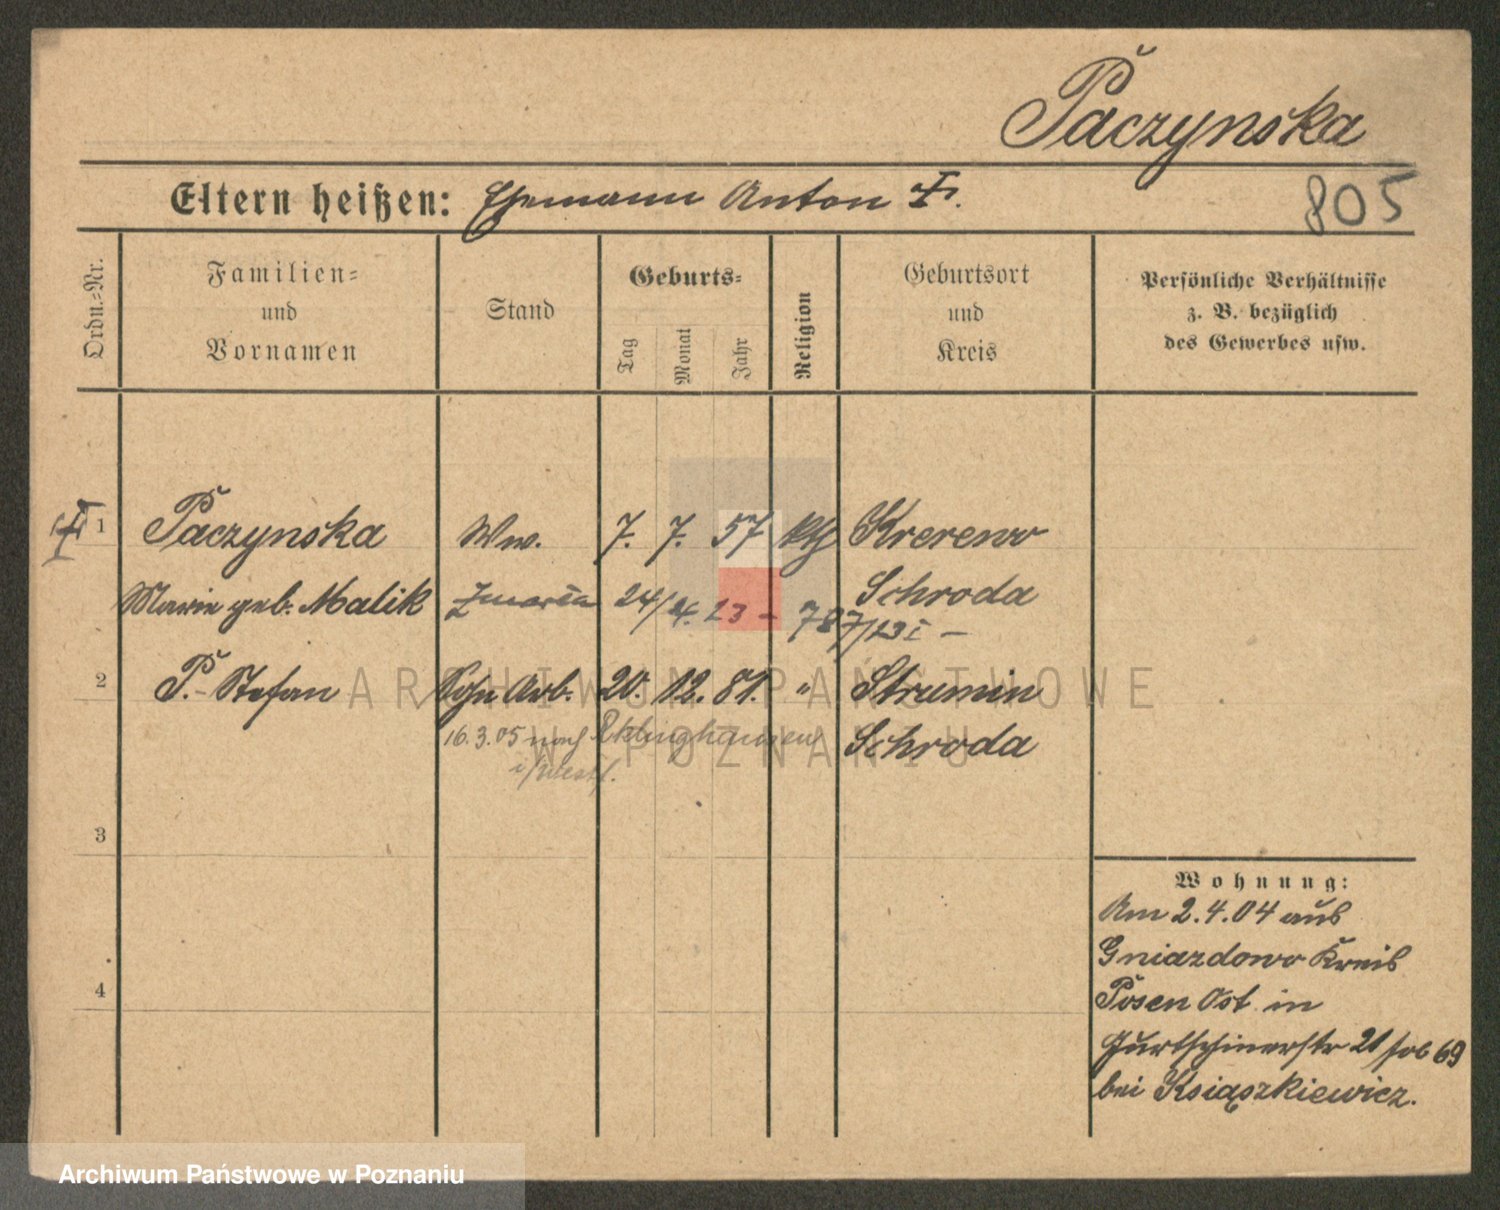 Paczynska
Eltern heißen: Ehemann Anton †.
805
Ordn.-Nr.
Familien-
und
Vornamen
Stand
Geburts-
Tag
Monat
Jahr
Religion
Geburtsort
und
Kreis
Persönliche Verhältnisse
z. B. bezüglich
des Gewerbes usw.
† 1 Paczynska Ww. 7. 7. 57 kth Krerewo
Marie geb. Malik zmarła 24/4. 23 - 787/23 I - Schroda
2 P. Stefan Sohn Arb. 20. 12. 81. " Strumin
16.3.05 nach Reklinghausen Schroda
i/Westf.
3
4
Wohnung:
Am 2.4.04 aus
Gniazdowo Kreis
Posen Ost in
Gurtschinerstr 21 69
bei Ksiąszkiewicz.
ARCHIWUM PAŃSTWOWE
W POZNANIU
Archiwum Państwowe w Poznaniu